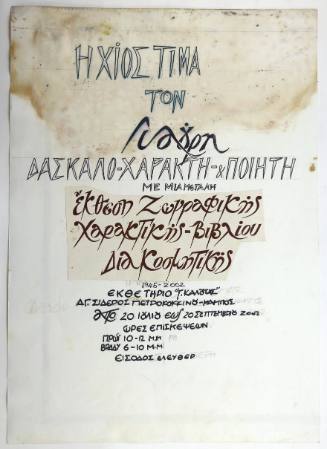 Η ΧΙΟΣ ΤΙΜΑ
ΤΟΝ
ΔΑΣΚΑΛΟ-ΧΑΡΑΚΤΗ-&ΠΟΙΗΤΗ
ΜΕ ΜΙΑ ΜΕΓΑΛΗ
ἔκθεση Ζωγραφικῆς
Χαρακτικῆς-Βιβλίου
Διακοσμητικῆς
1946-2002
ΕΚΘΕΤΗΡΙΟ
ΑΓ. ΣΙΔΕΡΟΣ ΠΕΤΡΟΚΟΚΚΙΝΟ-ΚΑΜΠΟΣ
ἀπό 20 ΙΟΛΙΟΥ ἕως 20 ΣΕΠΤΕΜΒΡΙΟΥ 2002
ΩΡΕΣ ΕΠΙΣΚΕΨΕΩΝ
ΠΡΩΪ 10-12 Μ.Μ
ΒΡΑΔΥ 6-10 Μ.Μ
ΕΙΣΟΔΟΣ ΕΛΕΥΘΕΡ